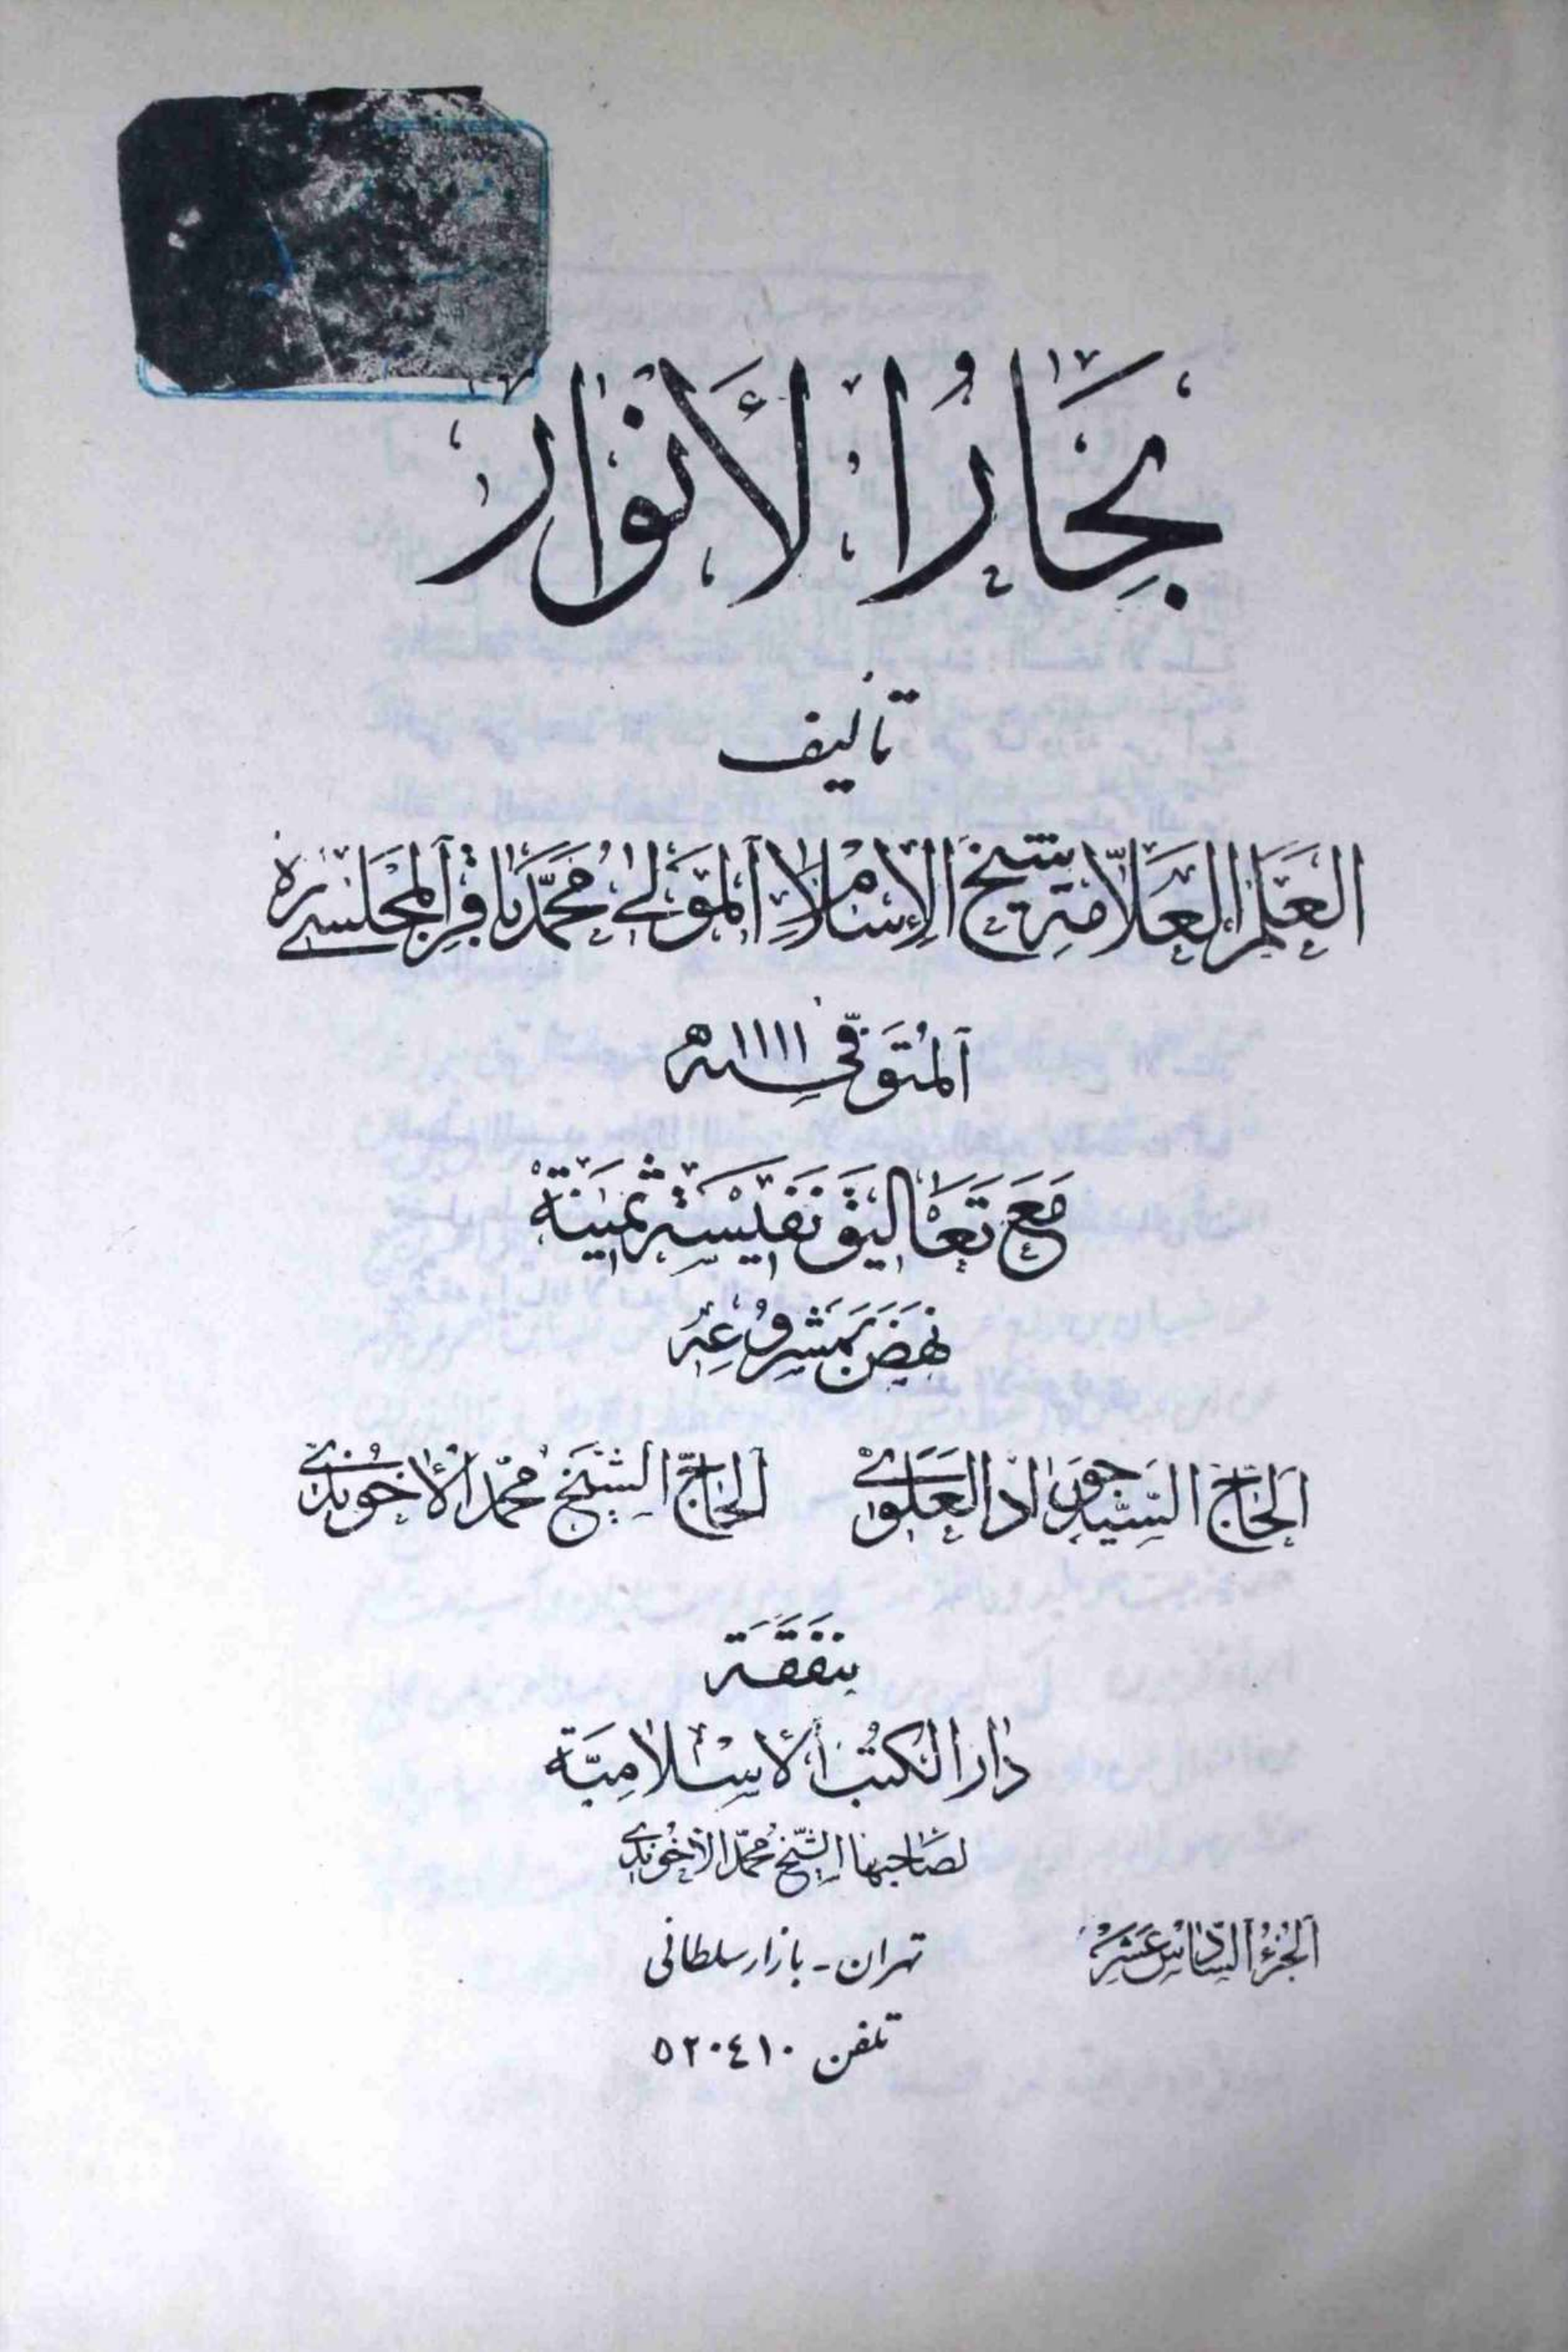 بِحَارُ الأَنْوَار
تأليف
العَلَم العَلاّمَة شَيخ الإِسْلام المَوْلى مُحَمَّد بَاقِر المَجْلِسي ره
المُتَوفّى سنه ١١١١ ه
مَعَ تَعَاليق نَفيسَة ثَمينَة
نَهَضَ بمَشْرُوعِه
الحَاجّ السَّيد جَواد العَلَوي الحَاجّ الشَيْخ مُحَمّد الأخُوندي
بنَفَقَة
دار الكتُب الأسْلامِيَّة
لصَاحبها الشَّيخ مُحَمّد الآخُوندي
الجُزءُ السَّادس عَشَر
تهران - بازار سلطانی
تلفن ٥٢٠٤١٠